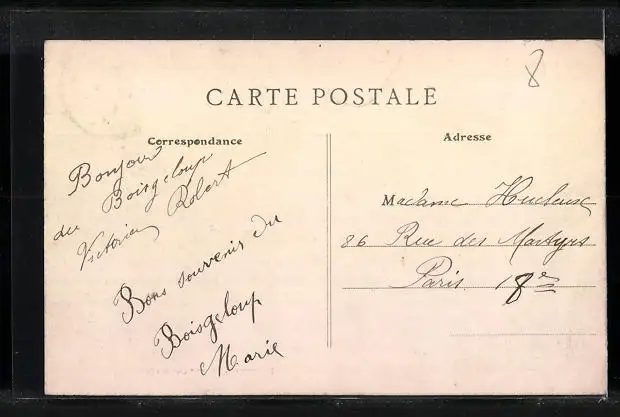 8
CARTE POSTALE
Correspondance
Bonjour
du Boisgeloup
Victorien Robert
Bons souvenir du
Boisgeloup
Marie
Adresse
Madame
86 Rue des Martyrs
Paris 18e